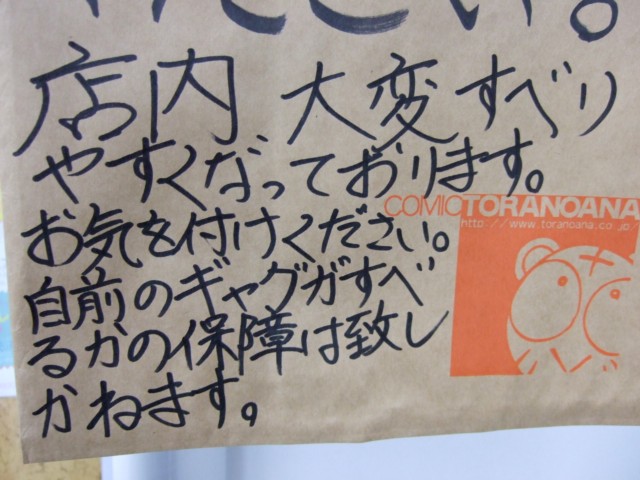 ください。
店内 大変すべり
やすくなっております。
お気を付けください。
自前のギャグがすべ
るかの保障は致し
かねます。
COMICTORANOANA
http://www.toranoana.co.jp/